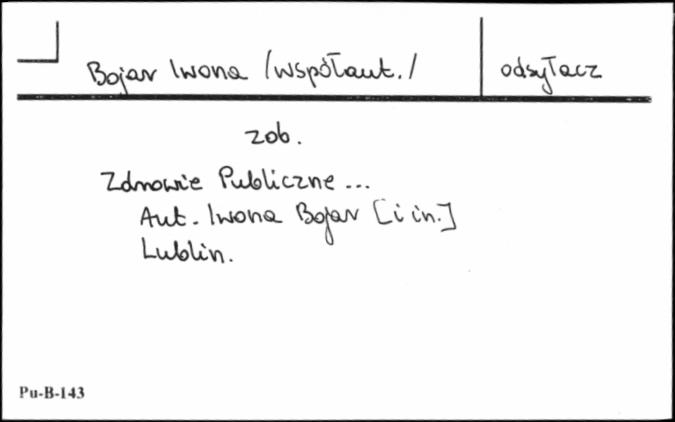 Bojar Iwona /współaut./ odsyłacz
zob.
Zdrowie Publiczne...
Aut. Iwona Bojar [i in.]
Lublin.
Pu-B-143